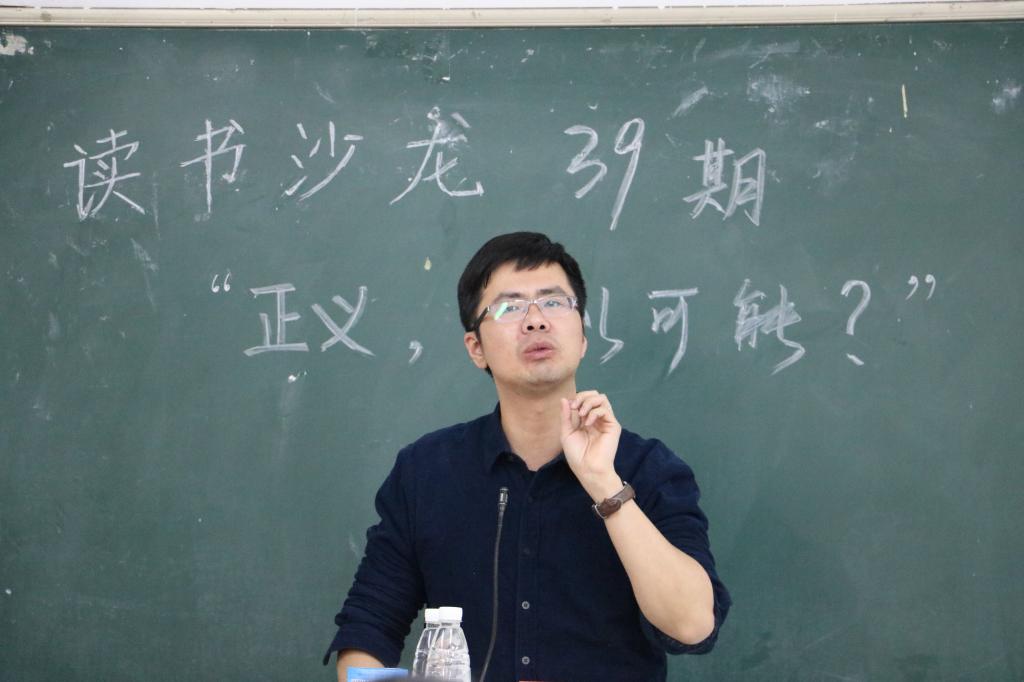 读书沙龙 39期
“正义, 以可能?”